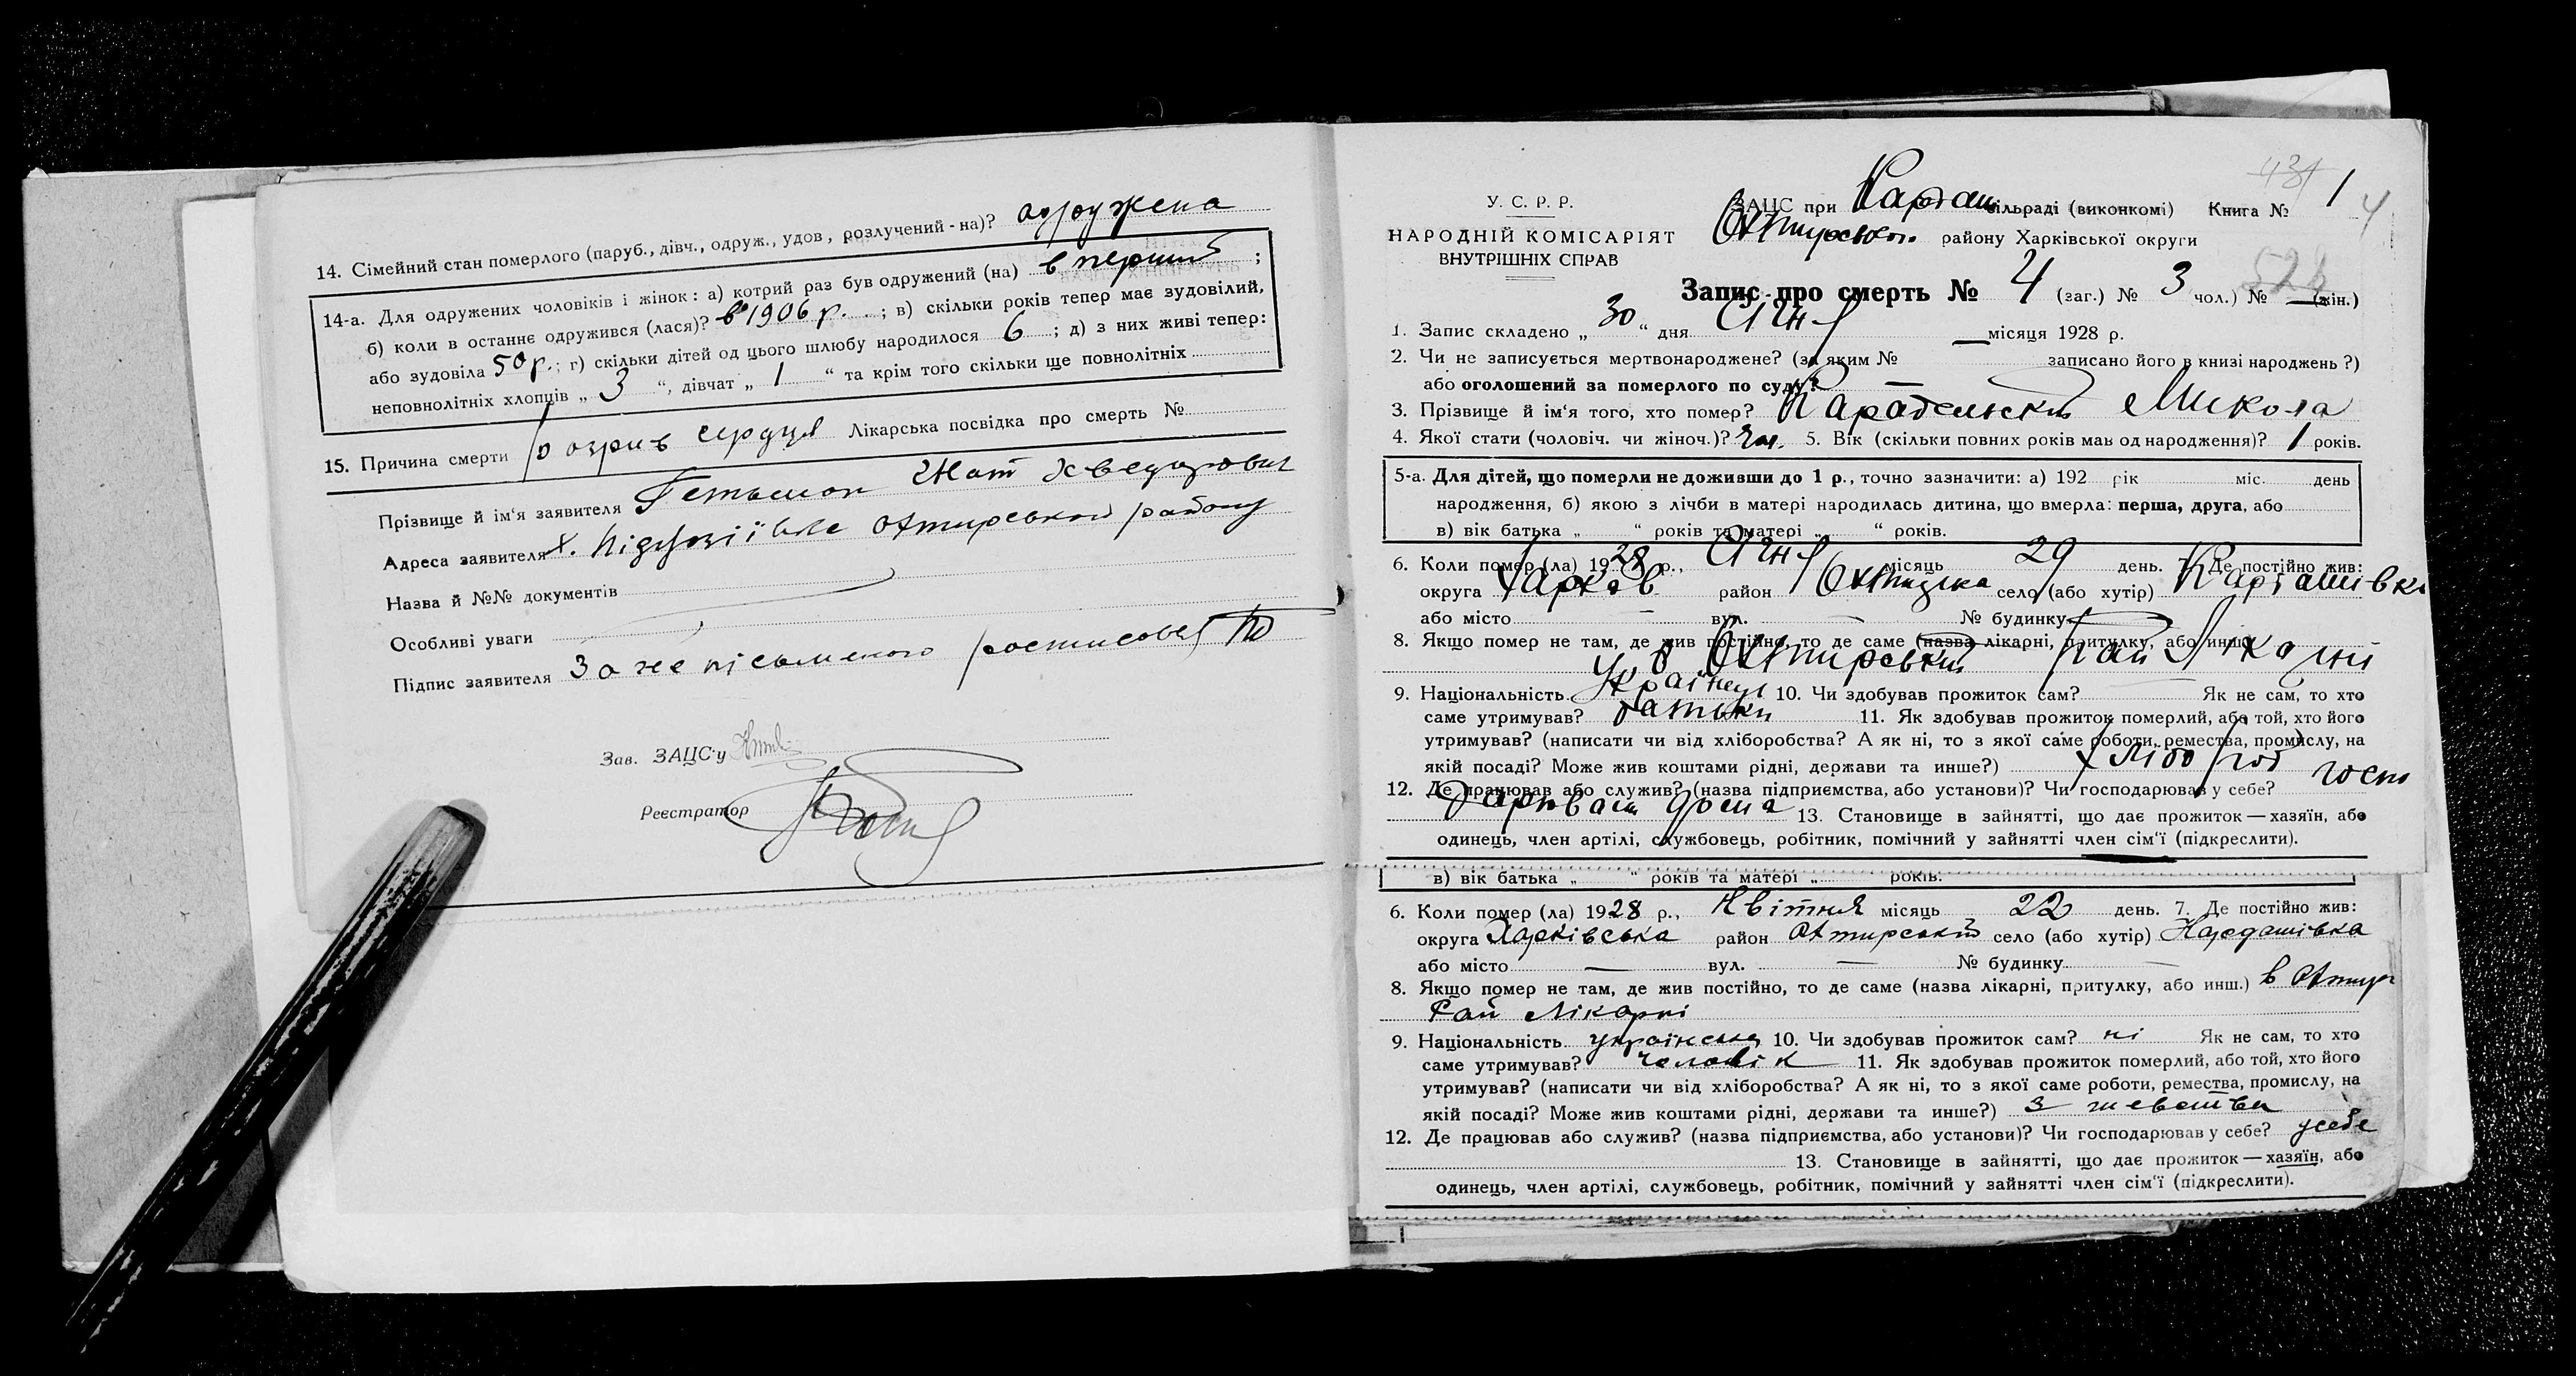 14. Сімейний стан померлого (паруб., дівч., одруж., удов, розлучений - на)? одружена
14-а. Для одружених чоловіків і жінок: а) котрий раз був одружений (на) в перший ;
б) коли в останнє одружився (лася)? в 1906 р. ; в) скільки років тепер має зудовілий,
або зудовіла 50 р.; г) скільки дітей од цього шлюбу народилося 6 ; д) з них живі тепер:
неповнолітніх хлопців „ 3 “, дівчат „ 1 “ та крім того скільки ще повнолітніх
15. Причина смерти розрив сердця Лікарська посвідка про смерть №
Прізвище й ім‘я заявителя Гетьман
Адреса заявителя х. Охтирського району
Назва й №№ документів
Особливі уваги
Підпис заявителя За не письменого росписався
Зав. ЗАЦС‘у
Реєстратор
У. С. Р. Р.
НАРОДНІЙ КОМІСАРІЯТ
ВНУТРІШНІХ СПРАВ
ЗАЦС при Кардаш сільраді (виконкомі) Книга № 1
Охтирського району Харківської округи
Запис про смерть № 4 (заг.) № 3 чол.) № — (жін.)
1. Запис складено „ 30 “ дня Січня місяця 1928 р.
2. Чи не записується мертвонароджене? (за яким № записано його в книзі народжень ?)
або оголошений за померлого по суду? —
3. Прізвище й ім‘я того, хто помер? Микола
4. Якої стати (чоловіч. чи жіноч.)? чол. 5. Вік (скільки повних років мав од народження)? 1 років.
5-а. Для дітей, що померли не доживши до 1 р., точно зазначити: а) 192 рік міс. день
народження, б) якою з лічби в матері народилась дитина, що вмерла: перша, друга, або
в) вік батька „ “ років та матері „ “ років.
6. Коли помер (ла) 1928 р., Січня місяць 29 день. 7. Де постійно жив:
округа Харків район Охтирка село (або хутір) Кардашівка
або місто вул. № будинку
8. Якщо помер не там, де жив постійно, то де саме (назва лікарні, притулку, або инш.)
у Охтирській Рай Лікарні
9. Національність Українец 10. Чи здобував прожиток сам? Як не сам, то хто
саме утримував? батьки 11. Як здобував прожиток померлий, або той, хто його
утримував? (написати чи від хліборобства? А як ні, то з якої саме роботи, ремества, промислу, на
якій посаді? Може жив коштами рідні, держави та инше?) хлібороб
12. Де працював або служив? (назва підприємства, або установи)? Чи господарював у себе? госпо
дарював дома 13. Становище в зайнятті, що дає прожиток — хазяїн, або
одинець, член артілі, службовець, робітник, помічний у зайнятті член сім‘ї (підкреслити).
в) вік батька „ “ років та матері „ років.
6. Коли помер (ла) 1928 р., Квітня місяць 22 день. 7. Де постійно жив:
округа Харківська район Охтирський село (або хутір) Кардашівка
або місто — вул. — № будинку —
8. Якщо помер не там, де жив постійно, то де саме (назва лікарні, притулку, або инш.) в Охтир
Рай Лікарні
9. Національність українська 10. Чи здобував прожиток сам? ні Як не сам, то хто
саме утримував? чоловік 11. Як здобував прожиток померлий, або той, хто його
утримував? (написати чи від хліборобства? А як ні, то з якої саме роботи, ремества, промислу, на
якій посаді? Може жив коштами рідні, держави та инше?) З шевства
12. Де працював або служив? (назва підприємства, або установи)? Чи господарював у себе? у себе
13. Становище в зайнятті, що дає прожиток — хазяїн, або
одинець, член артілі, службовець, робітник, помічний у зайнятті член сім‘ї (підкреслити).